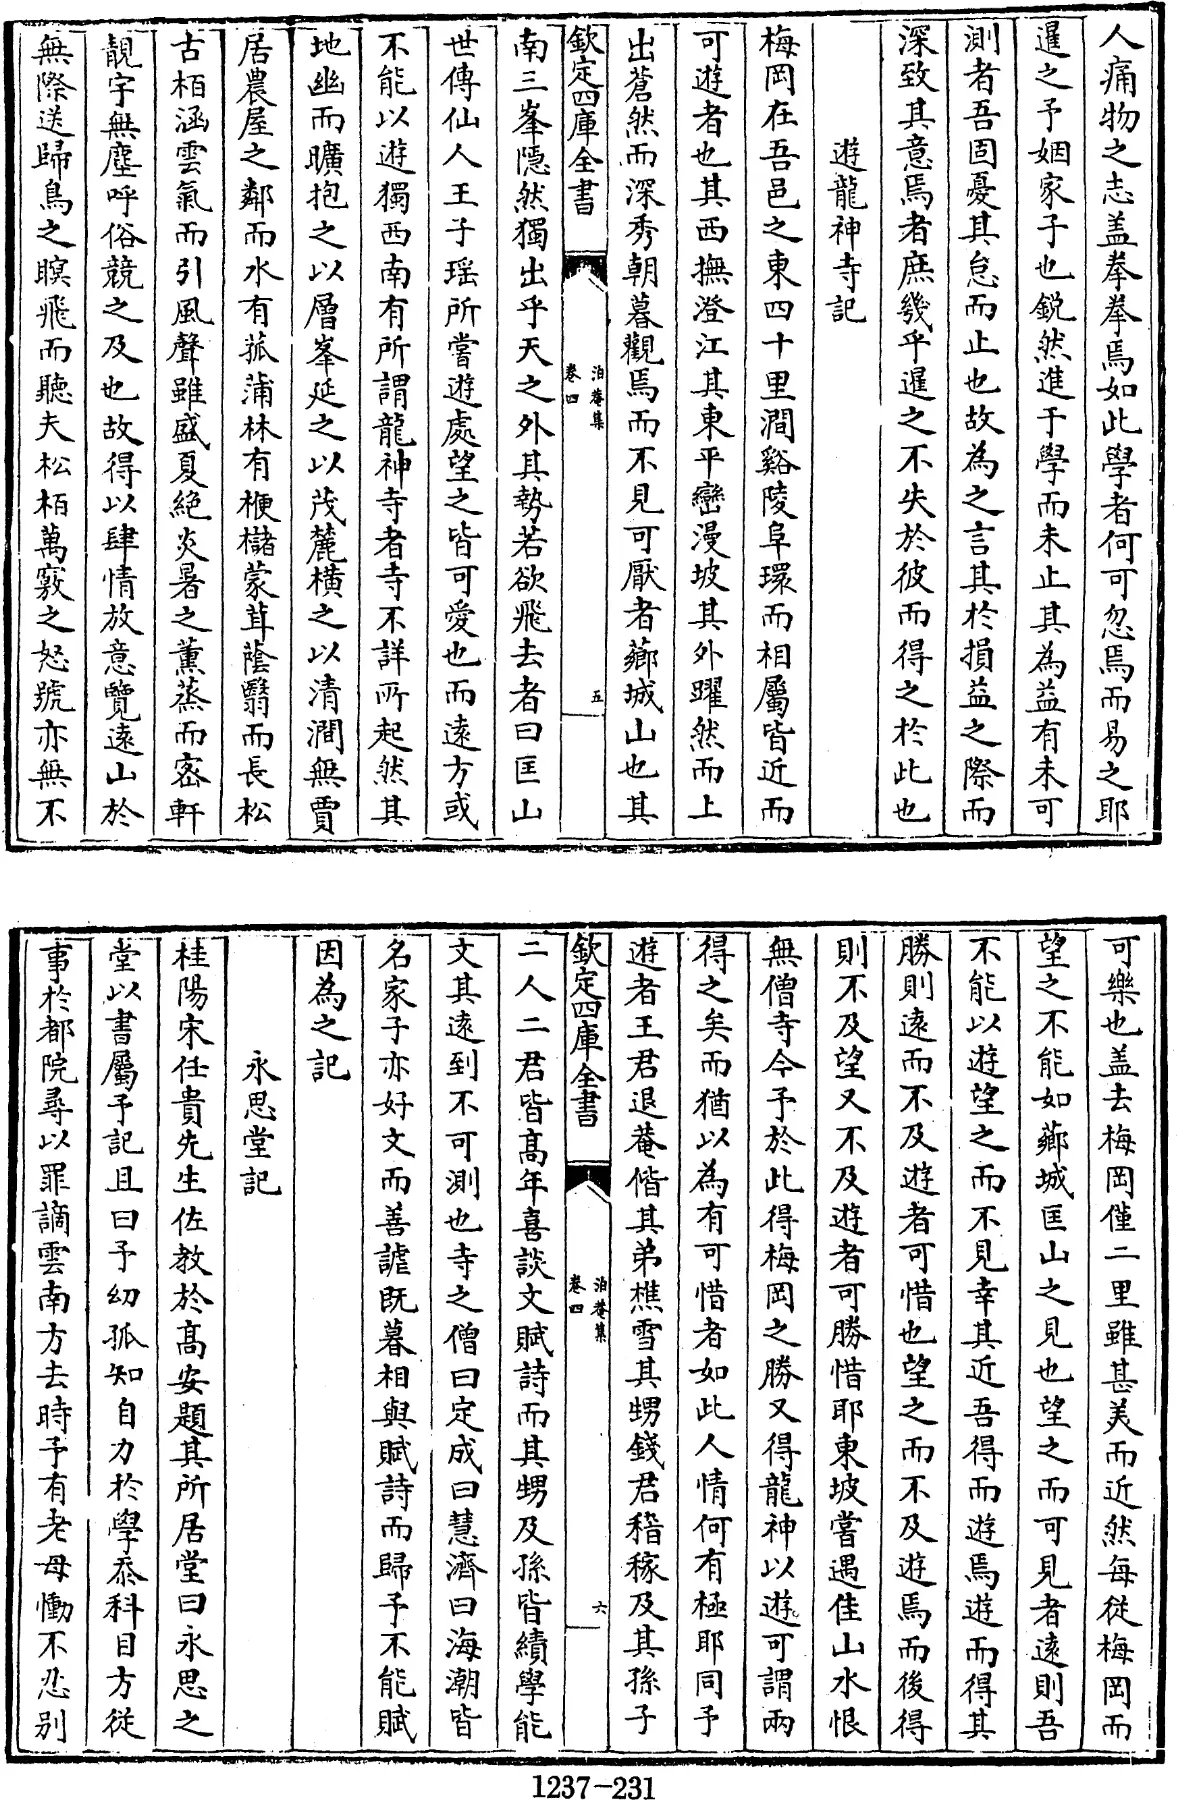 人痛物之志盖拳拳焉如此學者何可忽焉而易之耶
暹之予姻家子也鋭然進于學而未止其為益有未可
測者吾固憂其怠而止也故為之言其於損益之際而
深致其意焉者庶幾乎暹之不失於彼而得之於此也
遊龍神寺記
梅岡在吾邑之東四十里澗谿陵阜環而相屬皆近而
可遊者也其西撫澄江其東平巒漫坡其外躍然而上
出蒼然而深秀朝暮觀焉而不見可厭者薌城山也其
欽定四庫全書
泊菴集
卷四
五
南三峯隱然獨出乎天之外其勢若欲飛去者曰匡山
世傳仙人王子瑶所嘗遊處望之皆可愛也而遠方或
不能以遊獨西南有所謂龍神寺者寺不詳所起然其
地幽而曠抱之以層峯延之以茂麓横之以清澗無賈
居農屋之鄰而水有菰蒲林有梗櫧蒙茸蔭翳而長松
古栢涵雲氣而引風聲雖盛夏絶炎暑之薰蒸而宻軒
靚宇無塵呼俗競之及也故得以肆情放意覽遠山於
無際送歸鳥之瞑飛而聽夫松栢萬竅之怒號亦無不
可樂也盖去梅岡僅二里雖甚美而近然每從梅岡而
望之不能如薌城匡山之見也望之而可見者遠則吾
不能以遊望之而不見幸其近吾得而遊焉遊而得其
勝則遠而不及遊者可惜也望之而不及遊焉而後得
則不及望又不及遊者可勝惜耶東坡嘗遇佳山水恨
無僧寺今予於此得梅岡之勝又得龍神以遊可謂兩
得之矣而猶以為有可惜者如此人情何有極耶同予
遊者王君退菴偕其弟樵雪其甥錢君稽稼及其孫子
欽定四庫全書
泊菴集
卷四
六
二人二君皆髙年喜談文賦詩而其甥及孫皆績學能
文其遠到不可測也寺之僧曰定成曰慧濟曰海潮皆
名家子亦好文而善謔既暮相與賦詩而歸予不能賦
因為之記
永思堂記
桂陽宋任貴先生佐教於髙安題其所居堂曰永思之
堂以書屬予記且曰予幼孤知自力於學忝科目方從
事於都院尋以罪謫雲南方去時予有老母慟不忍别
1237-231